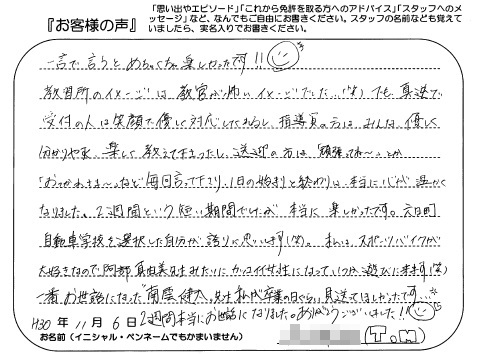 『お客様の声』
「思い出やエピソード」「これから免許を取る方へのアドバイス」「スタッフへのメッセージ」など、なんでもご自由にお書きください。スタッフの名前なども覚えていましたら、実名入りでお書きください。
一言で言うとめちゃくちゃ楽しかったです!!
教習所のイメージは教官が怖いイメージでした…(笑)でも、真逆で
受付の人は笑顔で優しく対応してくれるし、指導員の方はみんな優しく
分かりやすく楽しく教えて下さったし、送迎の方は「頑張ってね〜」とか
「おつかれさま〜」など毎日言って下さり、1日の始まりと終わりは本当に心が温かく
なりました。2週間という短い期間でしたが本当に楽しかったです。六日町
自動車学校を選択した自分が誇りに思います(笑)。私は、スポーツバイクが
大好きなので阿部真由美先生みたいにカッコイイ女性になっていつか遊びに来ます(笑)
一番お世話になった 南雲 先生、私が卒業の日ぐらい見送ってほしかったです…。
H30年 11月 6日 2週間本当にお世話になりました。ありがとうございました!
お名前(イニシャル・ペンネームでもかまいません) (T.M)